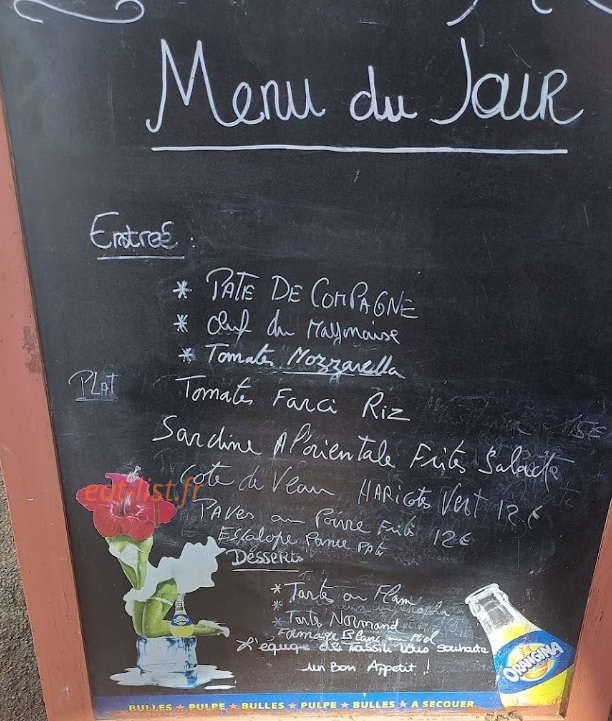 Menu du Jour
Entreé :
* PATE DE COMPAGNE
* Œuf du Mayonaise
* Tomates Mozzarella
PLAT
Tomates Farci Riz
Sardine A l'orientale Frites Salade
Cote de Veau HARICOTS Vert 12 €
PAVES au Poivre Frites 12€
Escalope Panée
edt-list.fr
Desserts
* Tarte ou Flan
* Tarte Normand
Fromage Blanc au Miel
L'équipe de vous souhaite
un Bon Appetit !!
ORANGINA
BULLES ★ PULPE ★ BULLES ★ PULPE ★ BULLES ★ A SECOUER